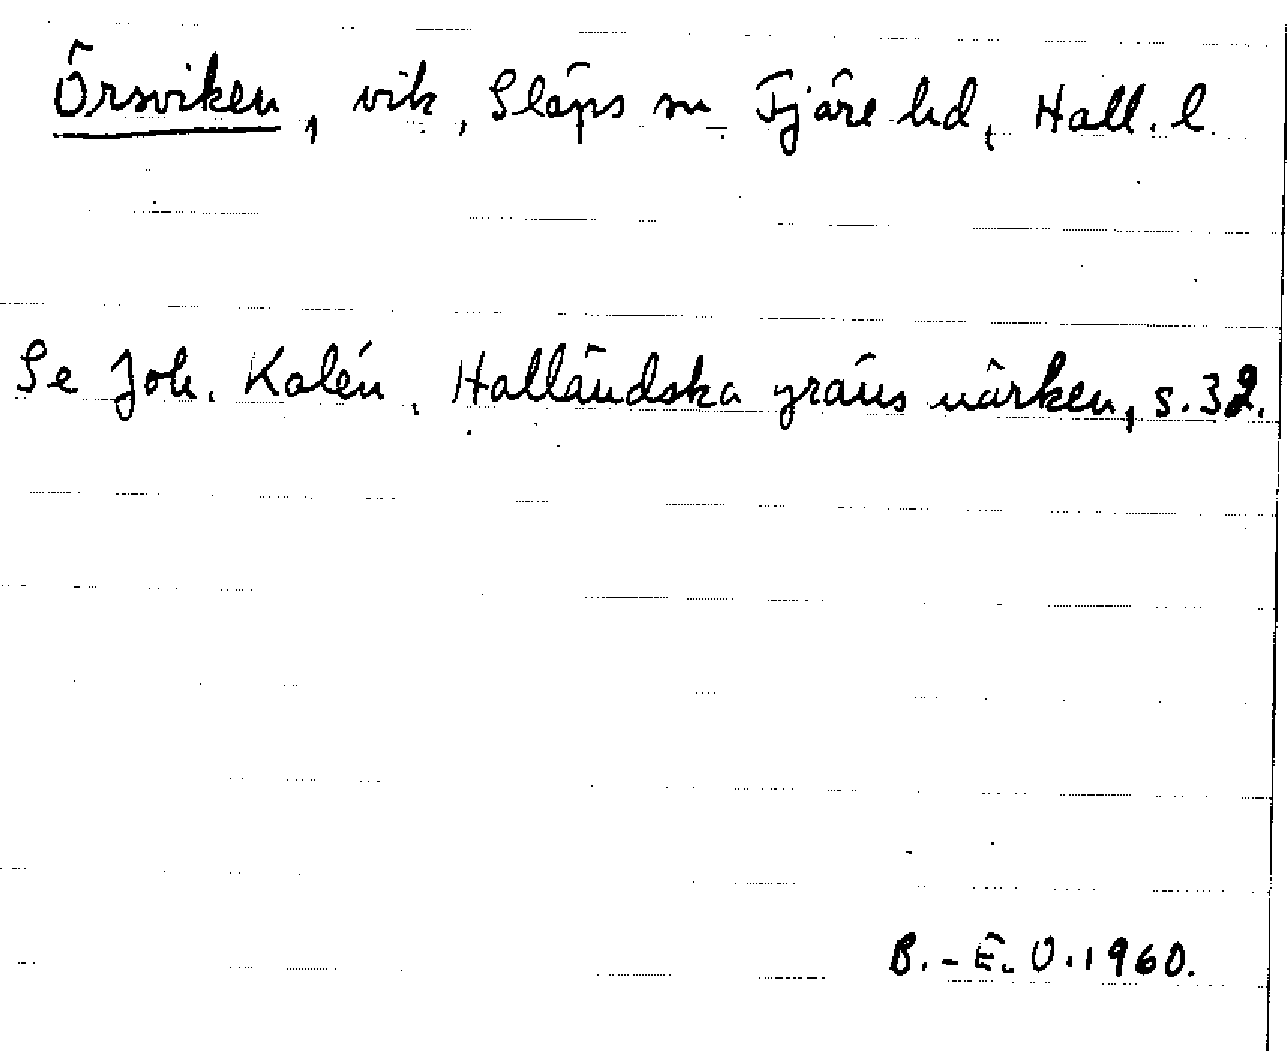 Örsviken, vik, Släps sn Fjäre hd, Hall. l.
Se Joh. Kalén, Halländska gräns märken, s. 32.
B.-E. O. 1960.